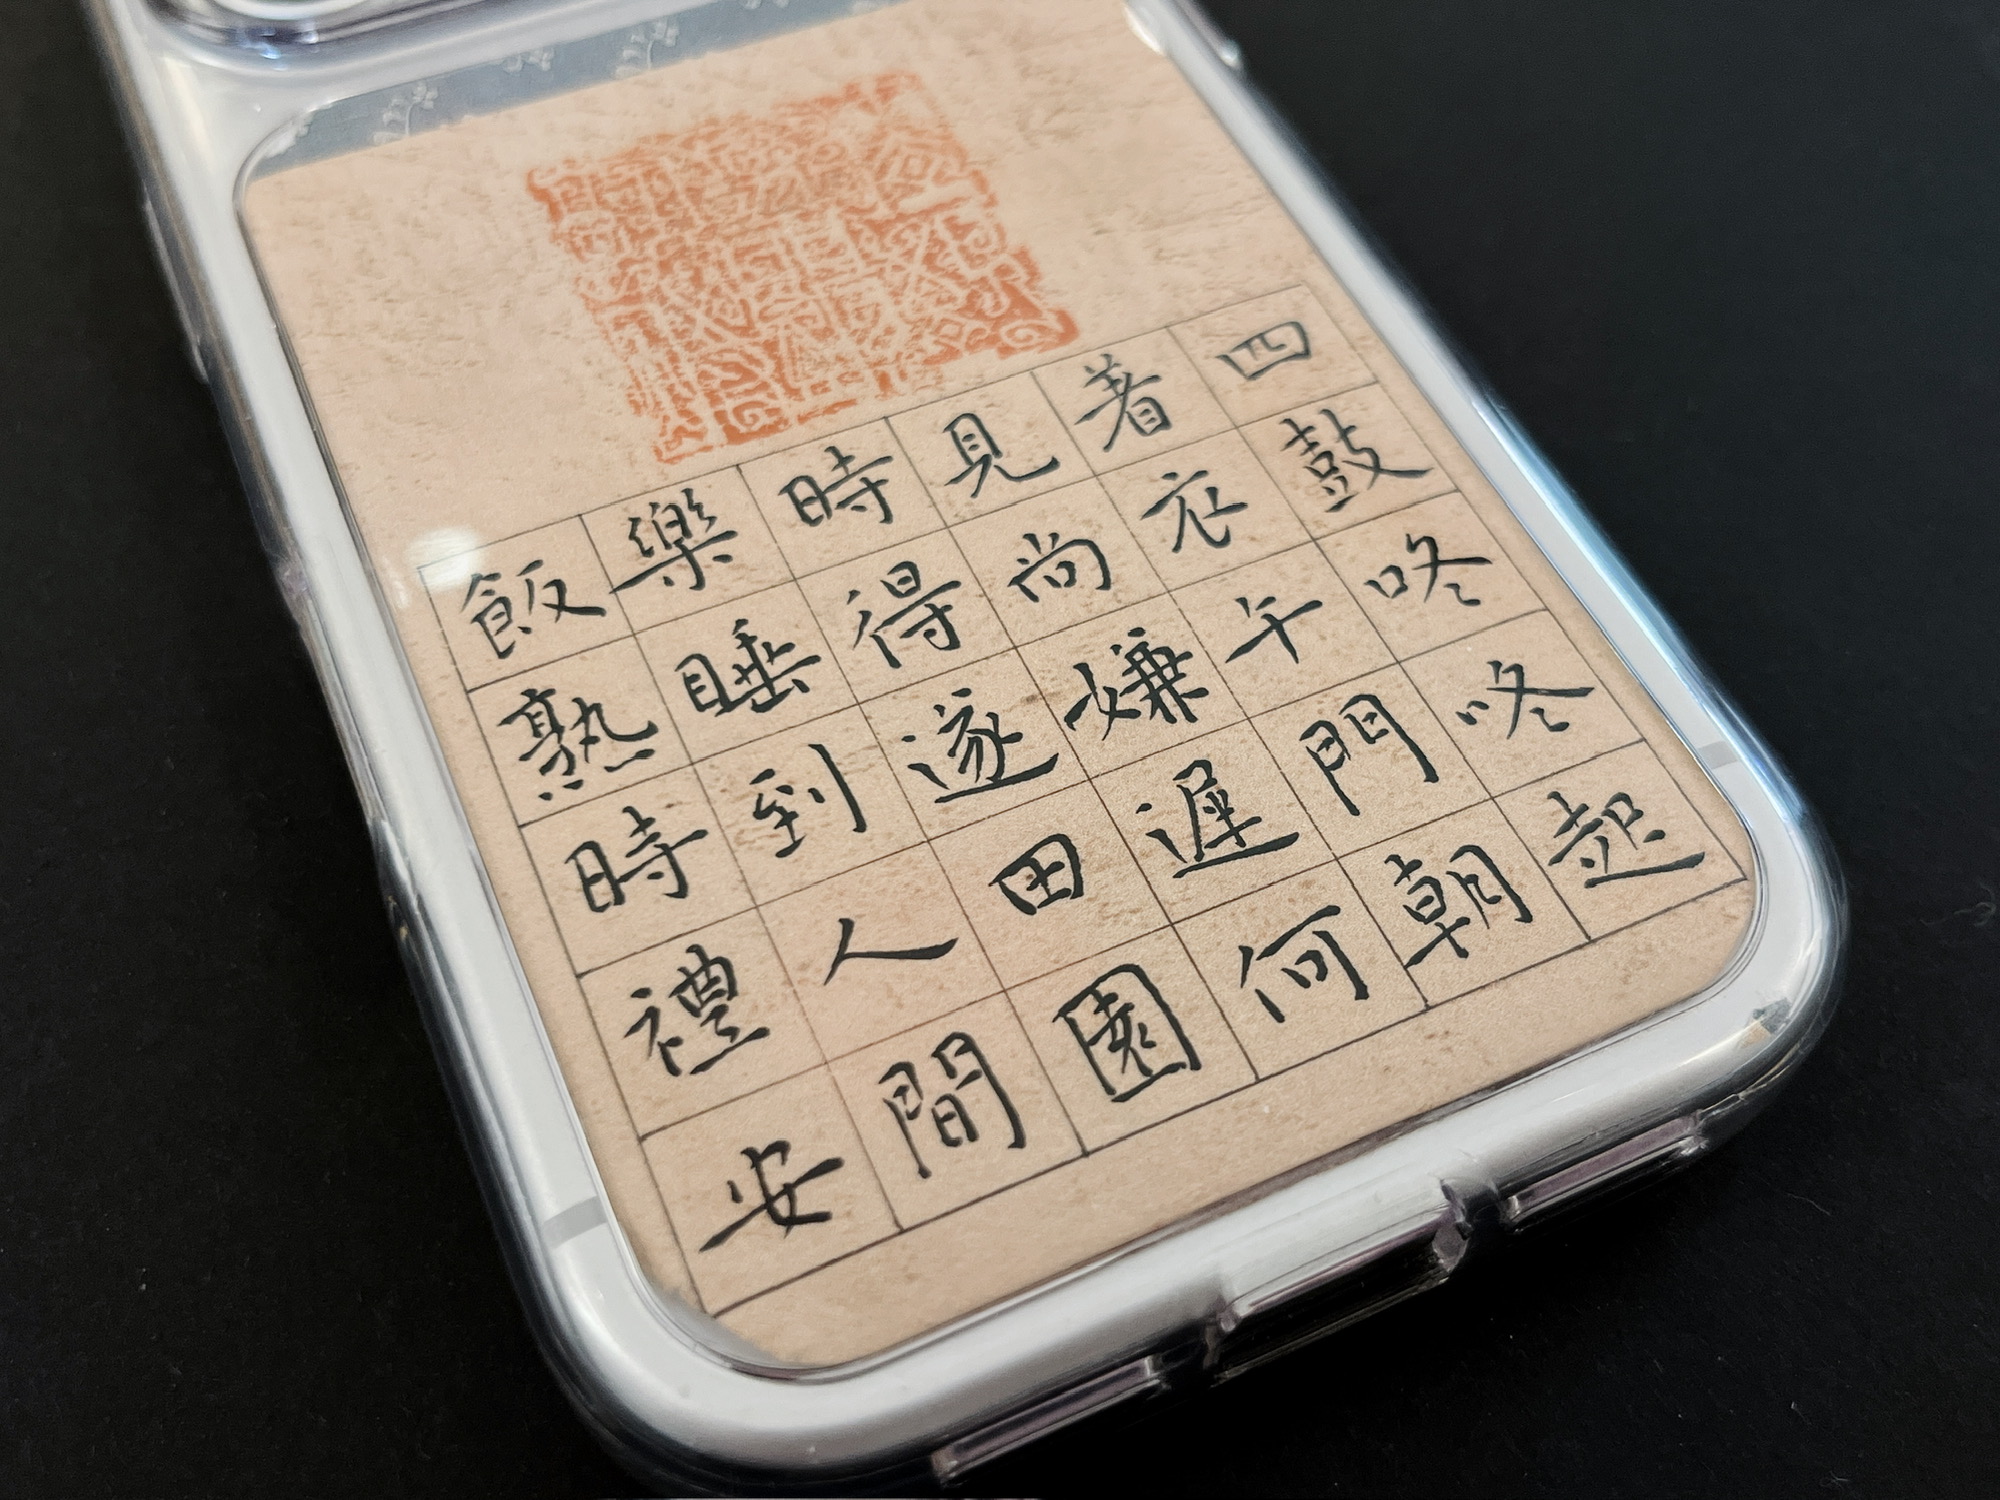 四鼓咚咚起
著衣午門朝
見尚嫌遲何
時得遂田園
樂睡到人間
飯熟時禮安